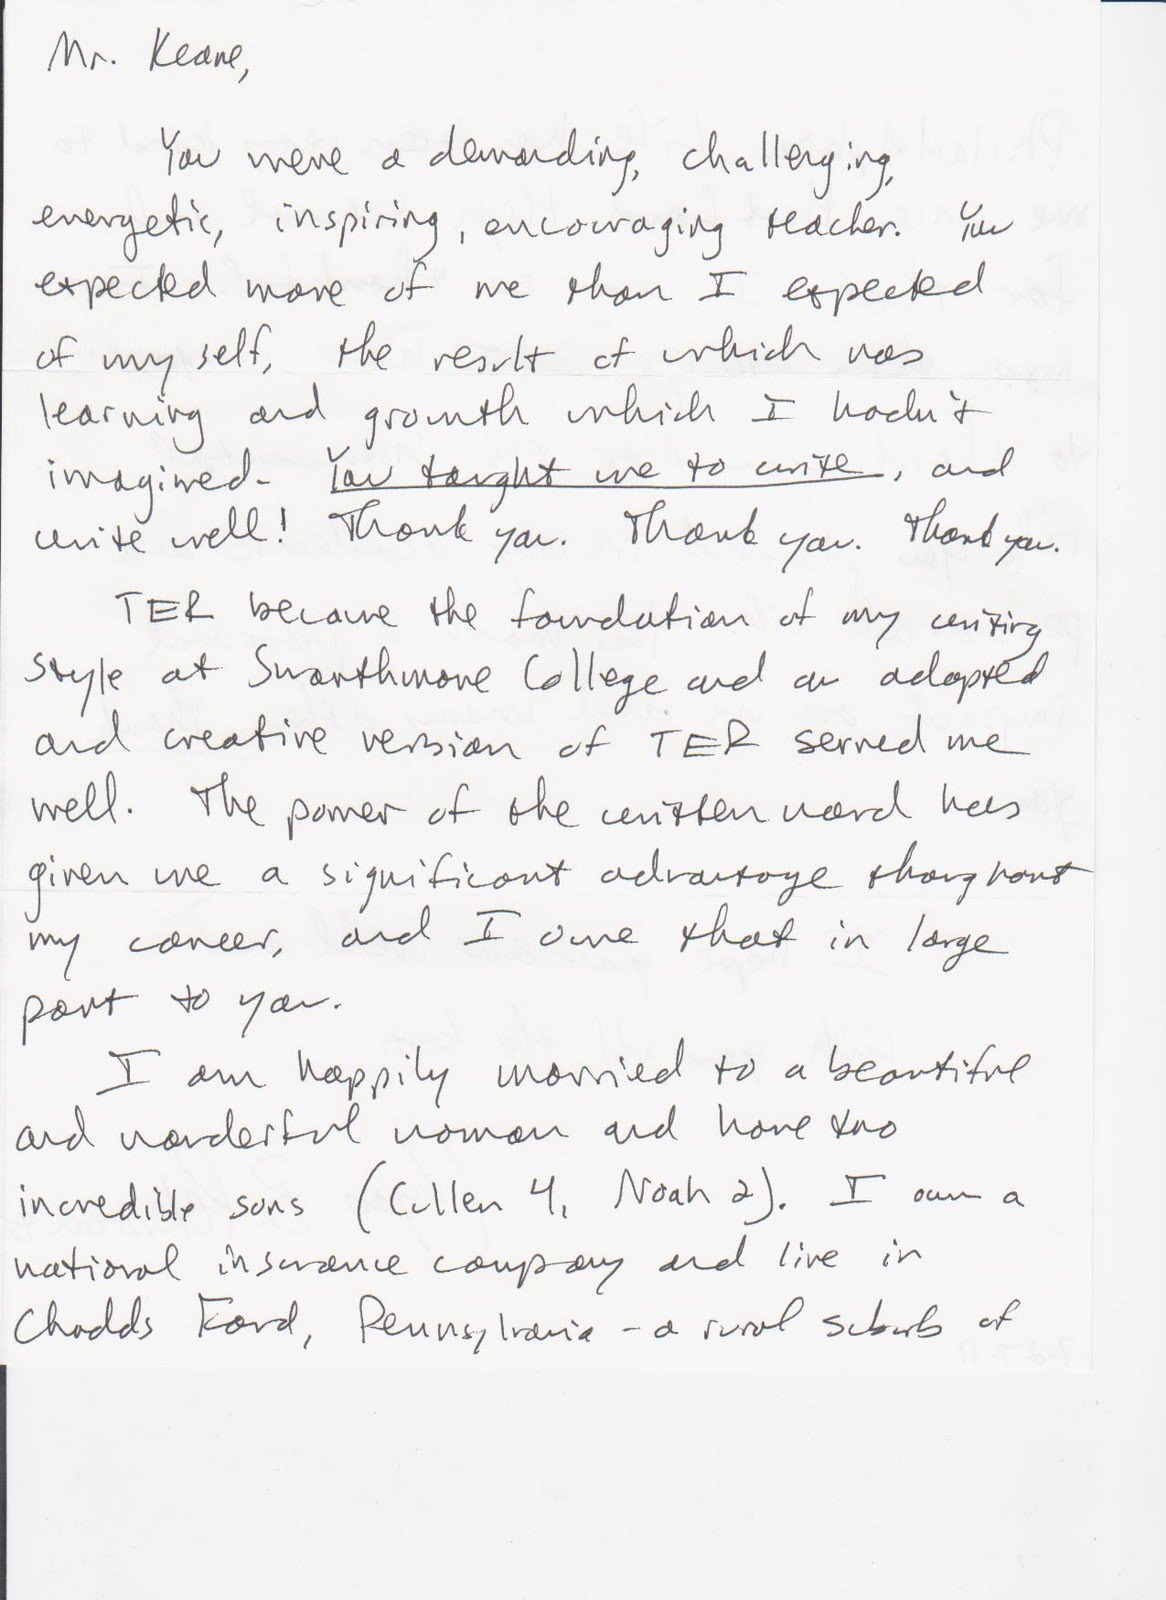 Mr. Keane,
You were a demanding, challenging,
energetic, inspiring, encouraging teacher. You
expected more of me than I expected
of myself, the result of which was
learning and growth which I hadn't
imagined. You taught me to write, and
write well! Thank you. Thank you. Thank you.
TER became the foundation of my writing
style at Swarthmore College and an adapted
and creative version of TER served me
well. The power of the written word has
given me a significant advantage throughout
my career, and I owe that in large
part to you.
I am happily married to a beautiful
and wonderful woman and have two
incredible sons (Cullen 4, Noah 2). I own a
national insurance company and live in
Chadds Ford, Pennsylvania - a rural suburb of